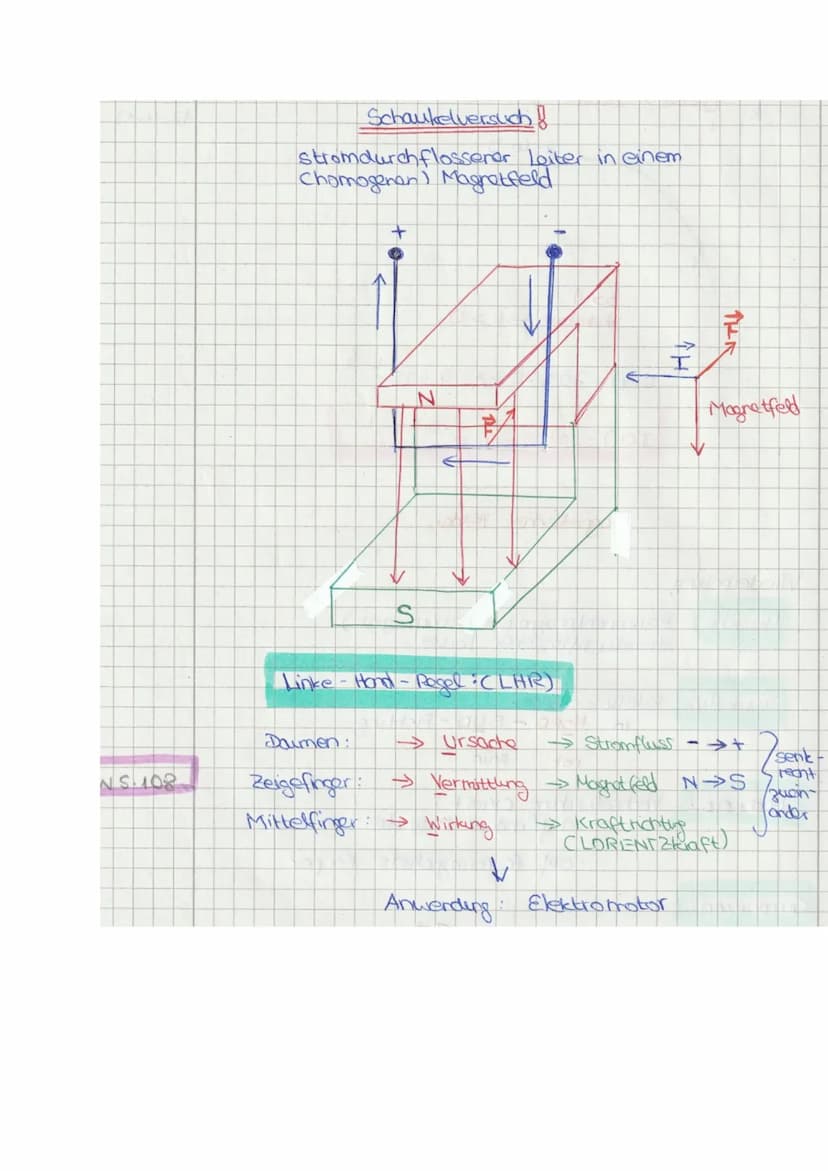 Schaukelversuch!
stromdurchflossener Leiter in einem
(homogenen) Magnetfeld
+ -
F
I
N
Magnetfeld
F
S
Linke-Hand-Regel: (LHR)
Daumen: → Ursache → Stromfluss - → +
Zeigefinger: → Vermittlung → Magnetfeld N → S
Mittelfinger: → Wirkung → Kraftrichtung
(LORENTZkraft)
senk-
recht
zuein-
ander
NS.108
↓
Anwendung: Elektromotor